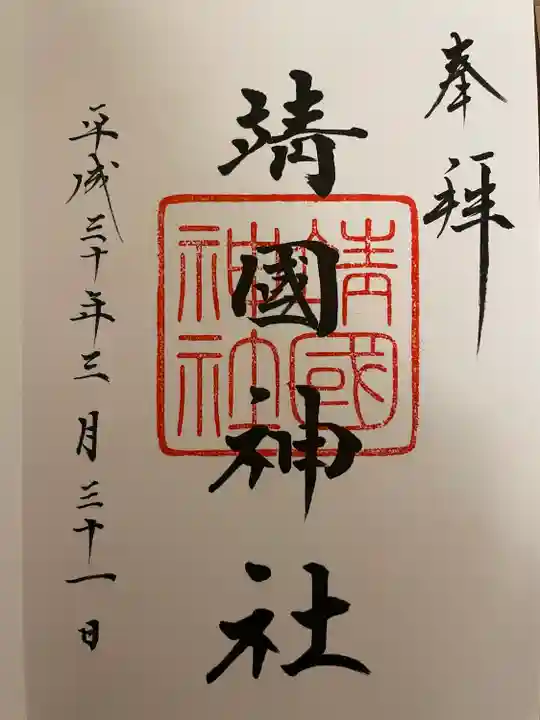 奉拝
靖國神社
靖國神社
平成三十年三月三十一日